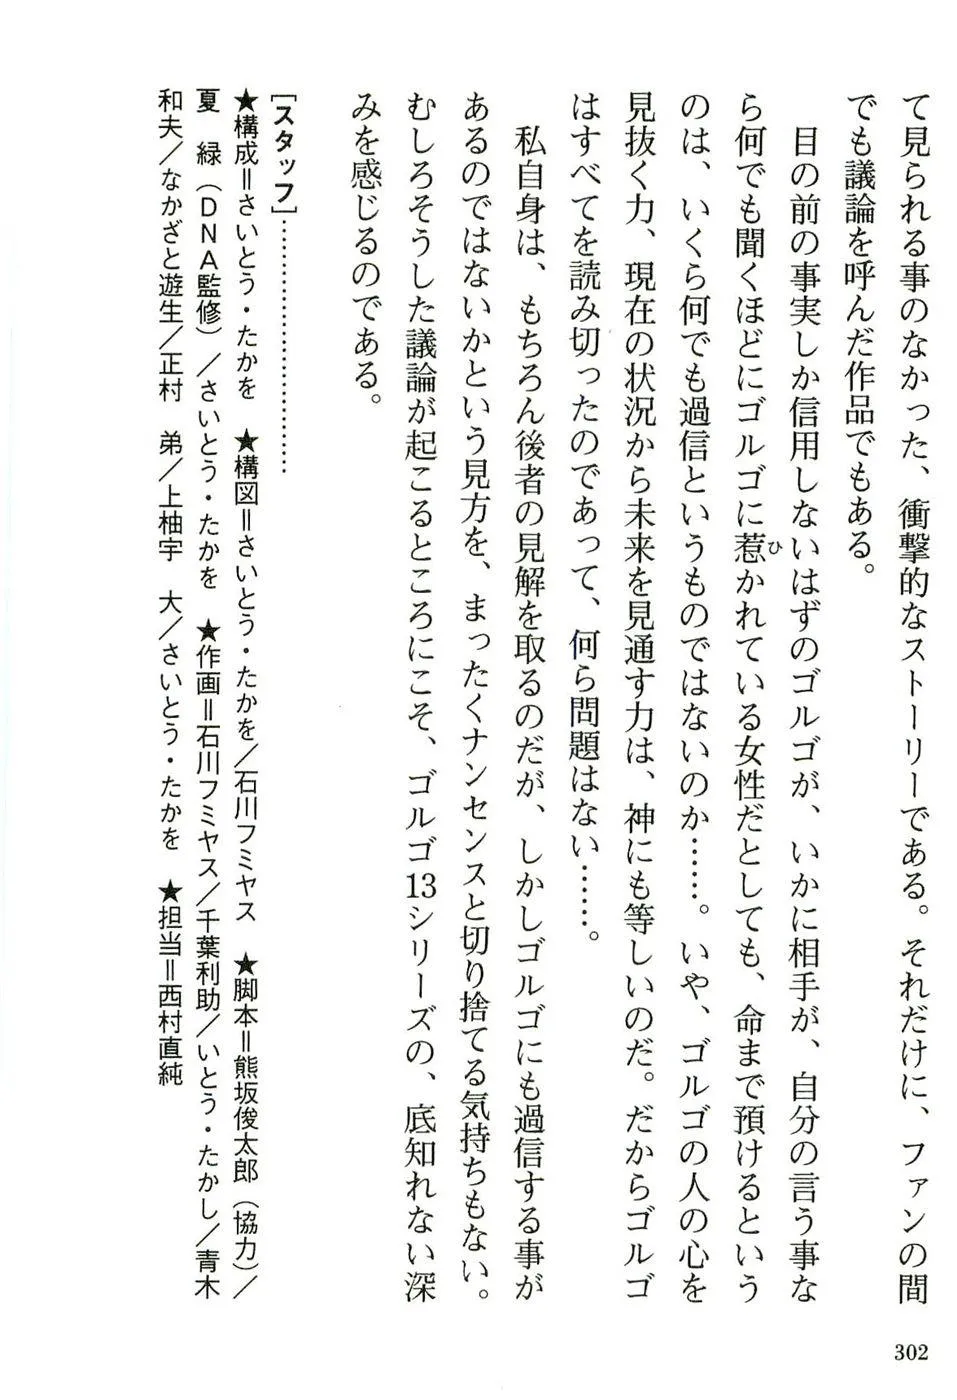 て見られる事のなかった、衝撃的なストーリーである。それだけに、ファンの間
でも議論を呼んだ作品でもある。
目の前の事実しか信用しないはずのゴルゴが、いかに相手が、自分の言う事な
ら何でも聞くほどにゴルゴに惹かれている女性だとしても、命まで預けるという
ひ
のは、いくら何でも過信というものではないのか……。いや、ゴルゴの人の心を
見抜く力、現在の状況から未来を見通す力は、神にも等しいのだ。だからゴルゴ
はすべてを読み切ったのであって、何ら問題はない……。
私自身は、もちろん後者の見解を取るのだが、しかしゴルゴにも過信する事が
あるのではないかという見方を、まったくナンセンスと切り捨てる気持ちもない。
むしろそうした議論が起こるところにこそ、ゴルゴ13シリーズの、底知れない深
みを感じるのである。
[スタッフ]……………………
★構成＝さいとう・たかを　★構図＝さいとう・たかを／石川フミヤス　★脚本＝熊坂俊太郎（協力）／
夏　緑（DNA監修）／さいとう・たかを　★作画＝石川フミヤス／千葉利助／いとう・たかし／青木
和夫／なかざと遊生／正村　弟／上柚宇　大／さいとう・たかを　★担当＝西村直純
302